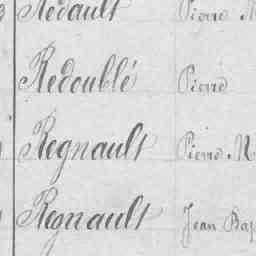 Redault Pierre
Redoublé Pierre
Regnault Pierre M
Regnault Jean Bap